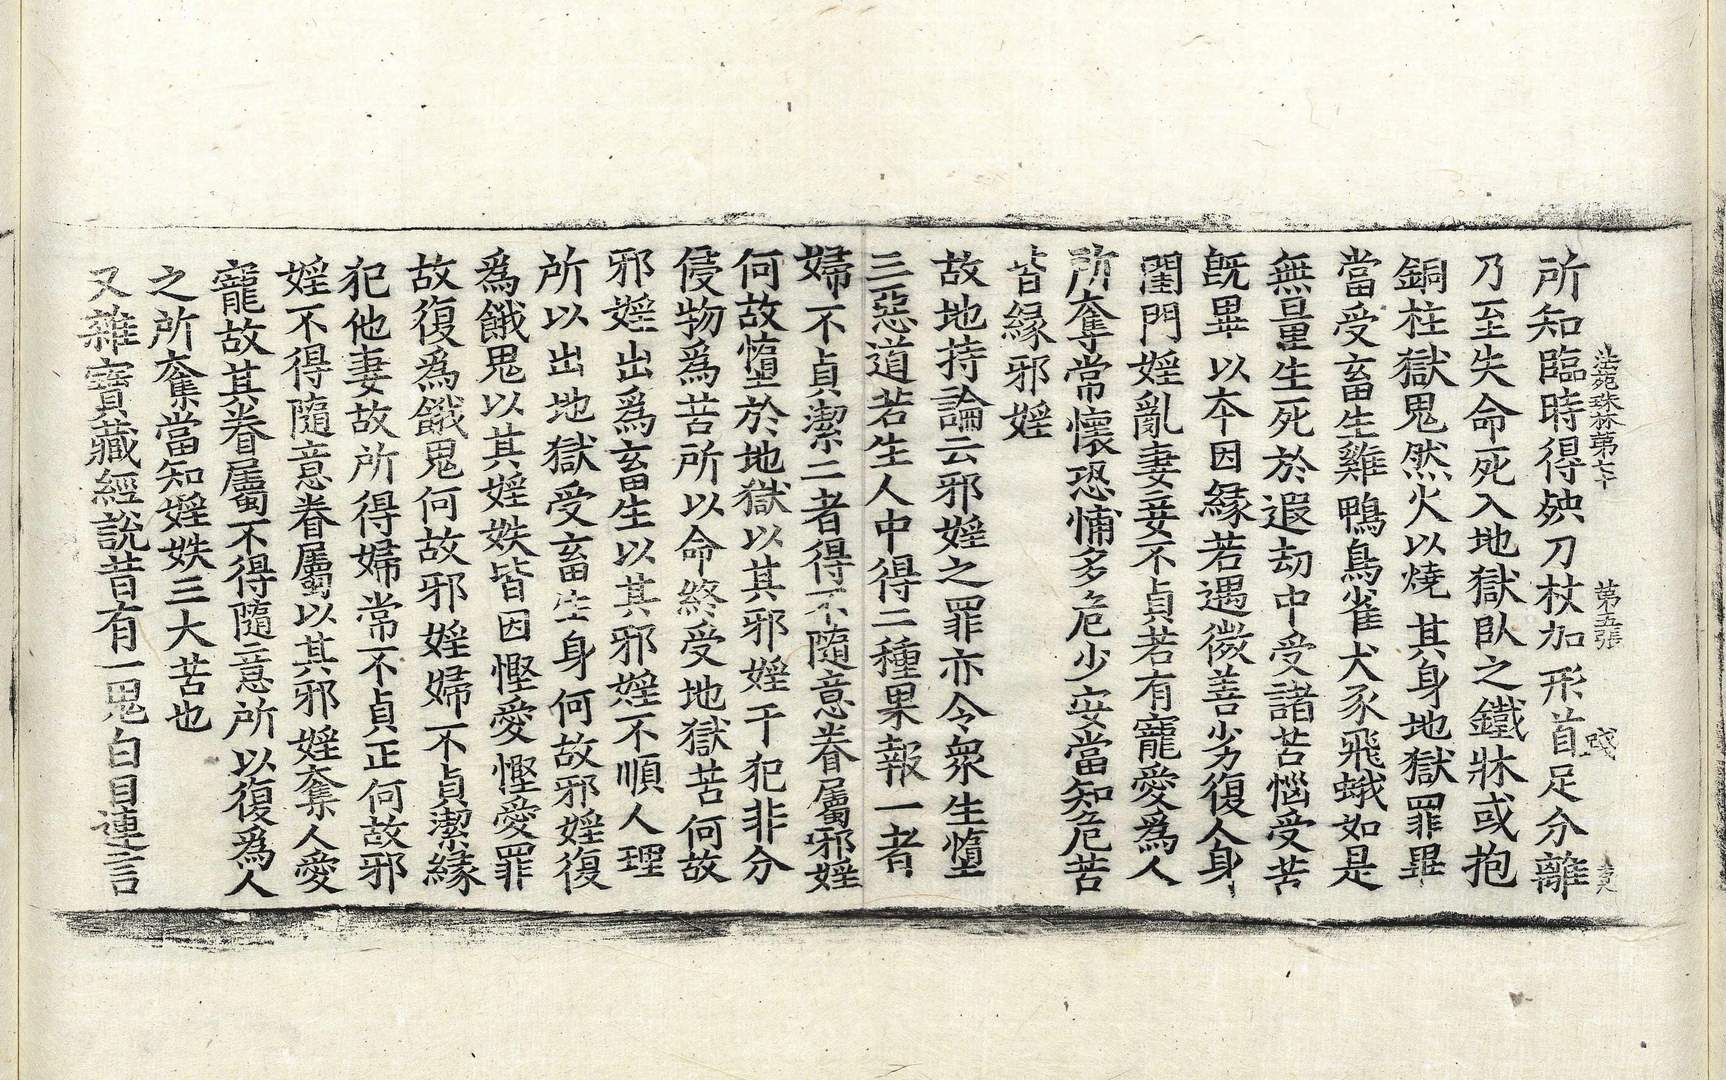 法苑珠林第七十 第五張
所知臨時得殃刀杖加形首足分離
乃至失命死入地獄臥之鐵牀或抱
銅柱獄鬼然火以燒其身地獄罪畢
當受畜生雞鴨鳥雀犬豕飛蛾如是
無量生死於遐劫中受諸苦惱受苦
旣畢以本因緣若遇微善劣復人身
閨門婬亂妻妾不貞若有寵愛爲人
所奪常懷恐怖多危少安當知危苦
皆緣邪婬
故地持論云邪婬之罪亦令衆生墮
三惡道若生人中得二種果報一者
婦不貞潔二者得不隨意眷屬邪婬
何故墮於地獄以其邪婬干犯非分
侵物爲苦所以命終受地獄苦何故
邪婬出爲畜生以其邪婬不順人理
所以出地獄受畜生身何故邪婬復
爲餓鬼以其婬妷皆因慳愛慳愛罪
故復爲餓鬼何故邪婬婦不貞潔緣
犯他妻故所得婦常不貞正何故邪
婬不得隨意眷屬以其邪婬奪人愛
寵故其眷屬不得隨意所以復爲人
之所奪當知婬妷三大苦也
又雜寶藏經說昔有一鬼白目連言